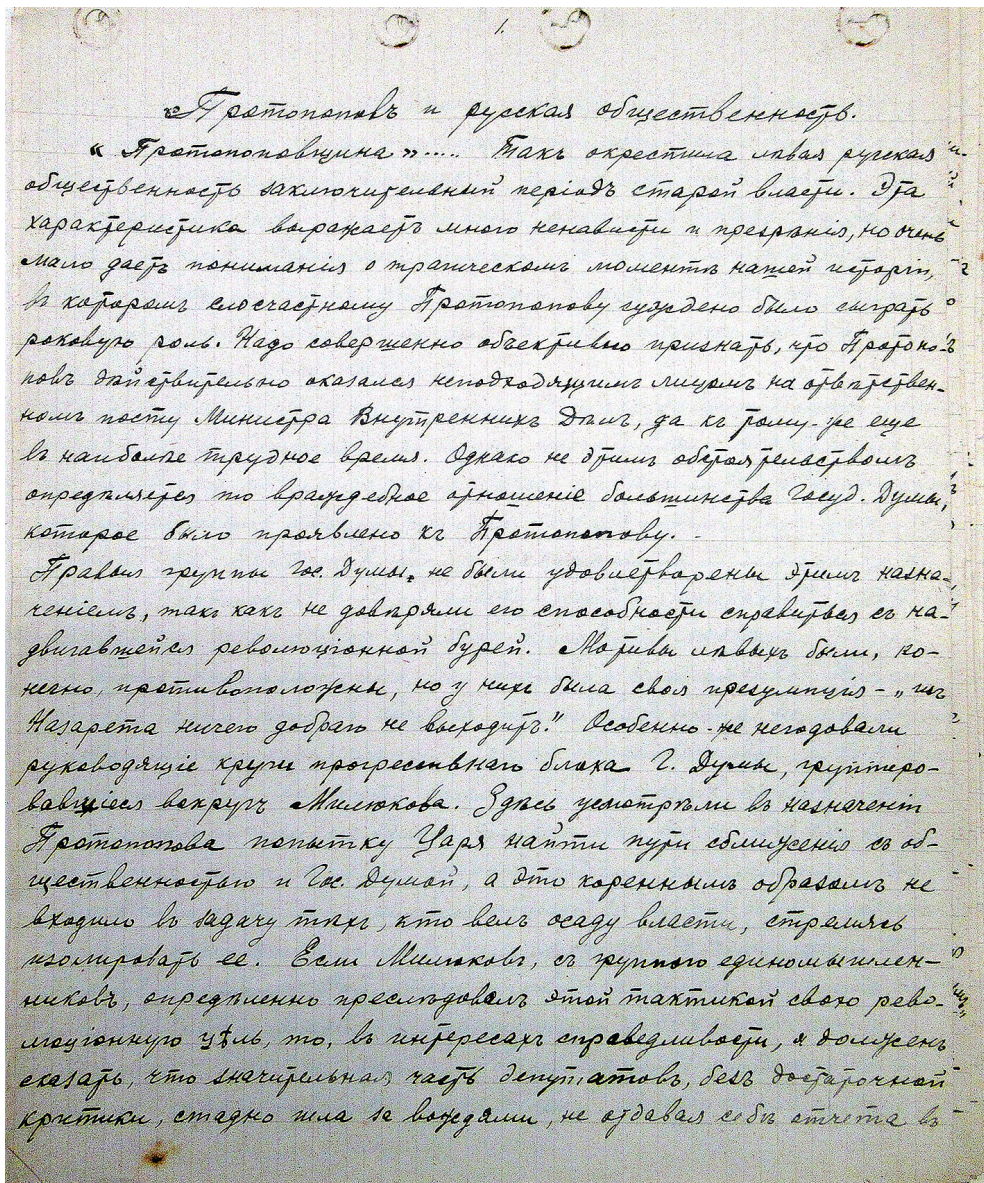 1.
Протопоповъ и русская общественность.
« Протопоповщина ».... Такъ окрестила лѣвая русская
общественность заключительный періодъ старой власти. Эта
характеристика выражаетъ много ненависти и презрѣнія, но очень
мало даетъ пониманія о трагическомъ моментѣ нашей исторіи,
въ которомъ злосчастному Протопопову суждено было сыграть
роковую роль. Надо совершенно объективно признать, что Протопо-
повъ дѣйствительно оказался неподходящимъ лицомъ на отвѣтствен-
номъ посту Министра Внутреннихъ Дѣлъ, да къ тому-же еще
въ наиболѣе трудное время. Однако не этимъ обстоятельствомъ
опредѣляется то враждебное отношеніе большинства Госуд. Думы,
которое было проявлено къ Протопопову.
Правыя группы Гос. Думы, не были удовлетворены этимъ назна-
ченіемъ, такъ какъ не довѣряли его способности справиться съ на-
двигавшейся революціонной бурей. Мотивы лѣвыхъ были, ко-
нечно, противоположны, но у нихъ была своя презумпція - „изъ
Назарета ничего добраго не выходитъ." Особенно-же негодовали
руководящіе круги прогрессивнаго блока Г. Думы, группиро-
вавшіеся вокругъ Милюкова. Здѣсь усмотрѣли въ назначеніи
Протопопова попытку Царя найти пути сближенія съ об-
щественностью и Гос. Думой, а это кореннымъ образомъ не
входило въ задачу тѣхъ, кто велъ осаду власти, стремясь
изолировать ее. Если Милюковъ, съ группою единомышлен-
никовъ, опредѣленно преслѣдовалъ этой тактикой свою рево-
люціонную цѣль, то, въ интересахъ справедливости, я долженъ
сказать, что значительная часть депутатовъ, безъ достаточной
критики, стадно шла за вождями, не отдавая себѣ отчета въ